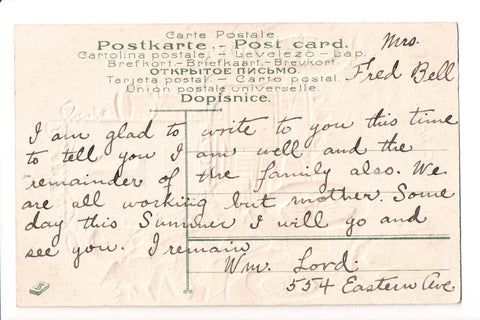 Carte Postale.
Postkarte.- Post card.
Cartolina postale. - Levelezö - Lap.
Brefkort.- Briefkaart.- Brevkort.
ОТКРЫТОЕ ПИСЬМО.
Tarjeta postal. — Carto postal.
Union postale universelle.
Dopisnice.
Mrs.
Fred Bell
I am glad to write to you this time
to tell you I am well and the
remainder of the family also. We
are all working but mother. Some
day this Summer I will go and
see you. I remain
Wm. Lord.
554 Eastern Ave